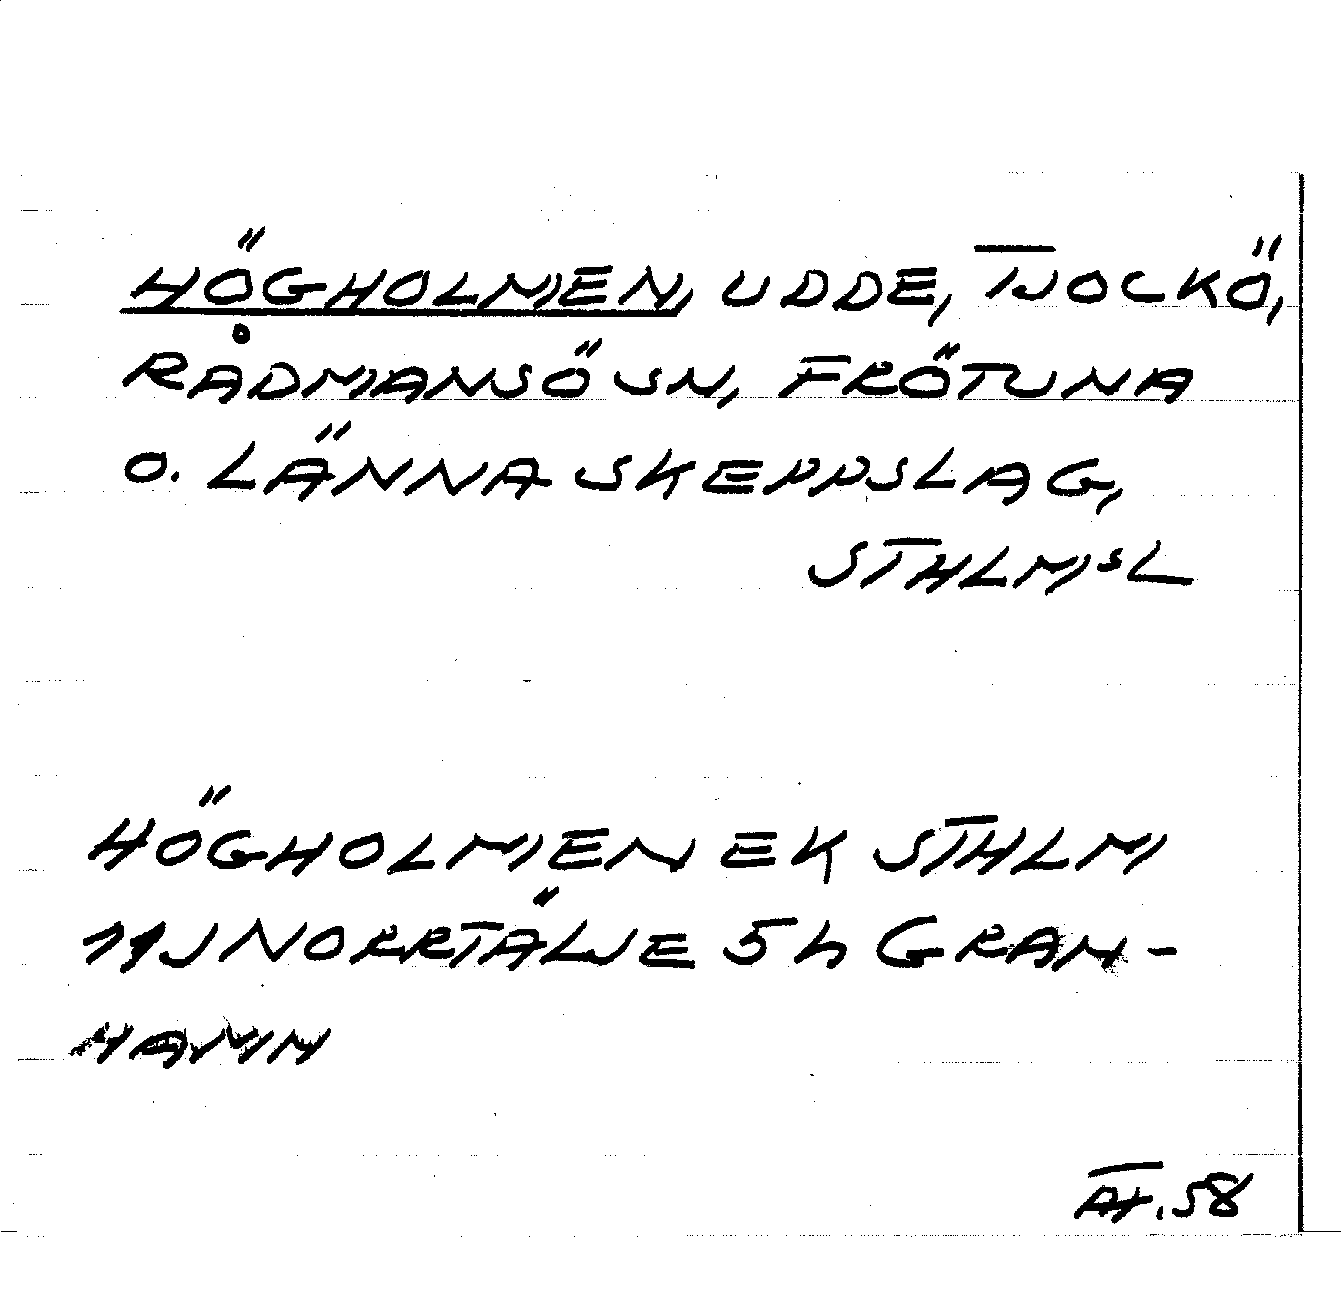 HÖGHOLMEN, UDDE, TJOCKÖ,
RÅDMANSÖ SN, FRÖTUNA
O. LÄNNA SKEPPSLAG,
STHLMSL
HÖGHOLMEN EK STHLM
11J NORRTÄLJE 5h GRAN-
HAMN
58